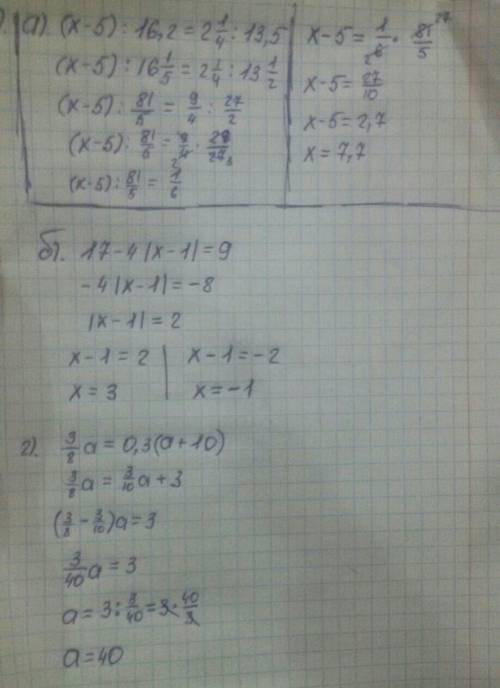 а). (x-5) : 16,2 = 2 1/4 : 13,5
(x-5) : 16 1/5 = 2 1/4 : 13 1/2
(x-5) : 81/5 = 9/4 : 27/2
(x-5) : 81/5 =
(x-5) : 81/5 = 1/6
x-5 = 1/6 · 81/5
2 27
x-5 = 27/10
x-5 = 2,7
x = 7,7
б). 17-4|x-1| = 9
-4|x-1| = -8
|x-1| = 2
x-1 = 2 | x-1 = -2
x = 3 | x = -1
г). 3/8 a = 0,3(a+10)
3/8 a = 3/10 a + 3
(3/8 - 3/10)a = 3
3/40 a = 3
a = 3 : 3/40 = 3 · 40/3
a = 40